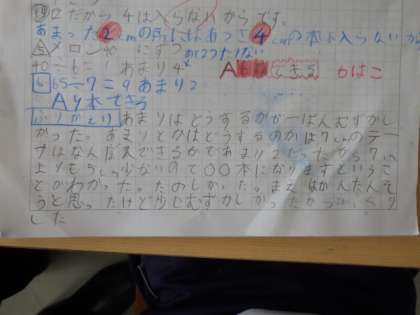 ロだから4は入らないからです。
あまった2cmの所にはあつさ4cmの本は入らないか
40÷6=6あまり4
A 6はこ
65÷7=9あまり2
A9本できる
ふりかえり あまりはどうするかが一ばんむずかし
かった。あまりとかはどうするのかは7cmのテー
プはなん本できるかであまり2だったから7cm
よりも少ないので〇〇本になりますというこ
とがわかった。たのしかった。まえはかんたんそ
うと思ったけど少しむずかしかったからびっくり
した